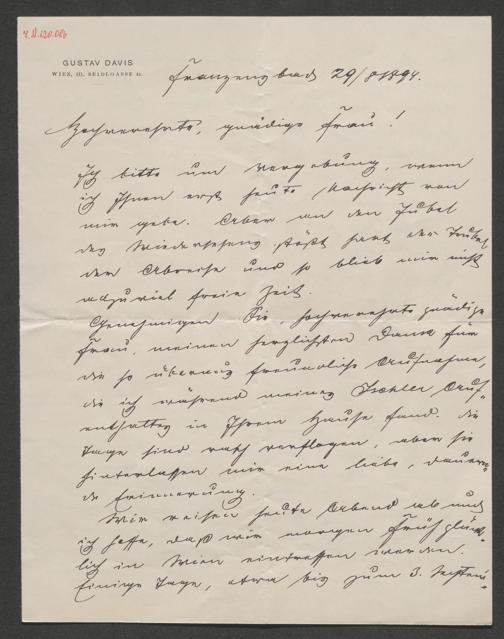 GUSTAV DAVIS
WIEN, III. SEIDLGASSE
Franzensbad 29/8 1894.
Hochverehrte, gnädige Frau!
Ich bitte um Vergebung, wenn
ich Ihnen erst heute Nachricht von
mir gebe. Aber an den Jubel
des Wiedersehens stößt hart der Trubel
der Abreise und so blieb mir nicht
allzuviel freie Zeit.
Genehmigen Sie, hochverehrte gnädige
Frau, meinen herzlichsten Dank für
die so überaus freundliche Aufnahme,
die ich während meines Ischler Auf-
enthaltes in Ihrem Hause fand. Die
Tage sind rasch verflogen, aber sie
hinterlassen mir eine liebe, dauern-
de Erinnerung.
Wir reisen heute Abend ab und
ich hoffe, daß wir morgen Früh glück-
lich in Wien eintreffen werden.
Einige Tage, etwa bis zum 3. Septem-